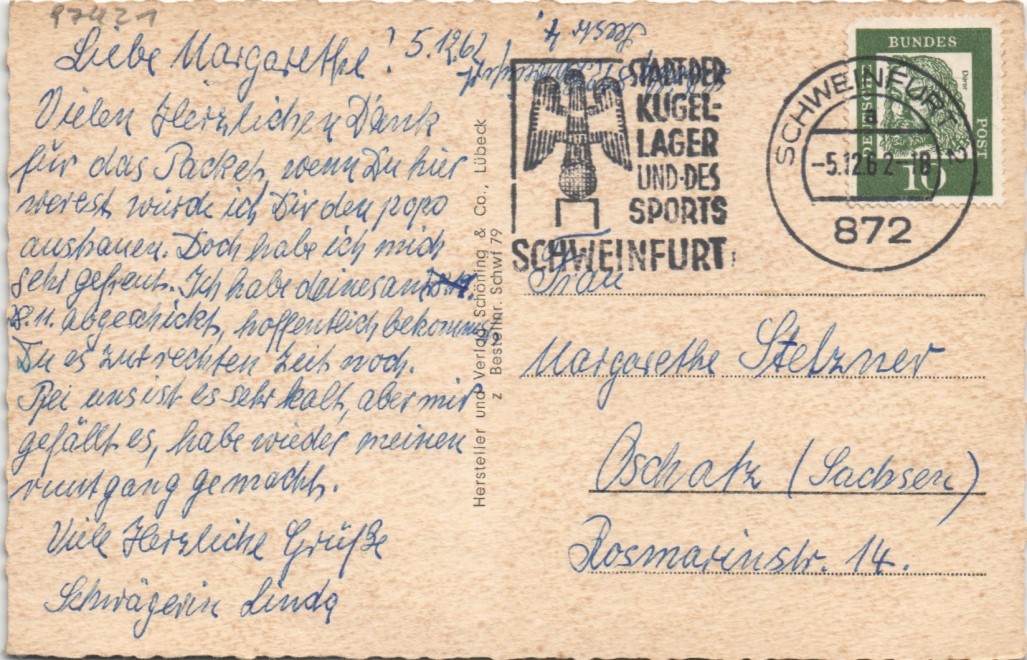 97421
Liebe Margarethe! 5.12.62
Vielen Herzlichen Dank
für das Packet, wenn Du hier
werest würde ich Dir den popo
aushauen. Doch habe ich mich
sehr gefreut. Ich habe deines am
8.11. abgeschickt, hoffentlich bekommst
Du es zur rechten Zeit noch.
Bei uns ist es sehr kalt, aber mir
gefällt es, habe wieder meinen
runtgang gemacht.
Viele Herzliche Grüße
Schwägerin Linda
Hersteller und Verlag Schöning & Co., Lübeck
z Bestellnr. Schwf 79
STADT DER
KUGEL-
LAGER
UND·DES
SPORTS
SCHWEINFURT
SCHWEINFURT 2
a
-5.12.62-18
872
DEUTSCHE
BUNDES
POST
Dürer
10
Frau
Margarethe Stelzner
Oschatz (Sachsen)
Rosmarinstr. 14.